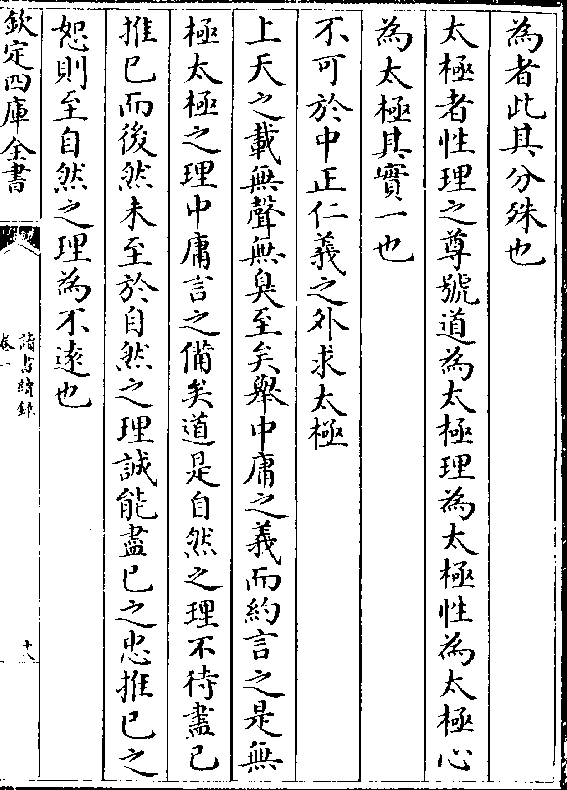 為者此其分殊也
太極者性理之尊號道為太極理為太極性為太極心
為太極其實一也
不可於中正仁義之外求太極
上天之載無聲無臭至矣舉中庸之義而約言之是無
極太極之理中庸言之備矣道是自然之理不待盡已
推已而後然未至於自然之理誠能盡已之忠推已之
恕則至自然之理為不逺也
欽定四庫全書
讀書續錄
卷一
十八